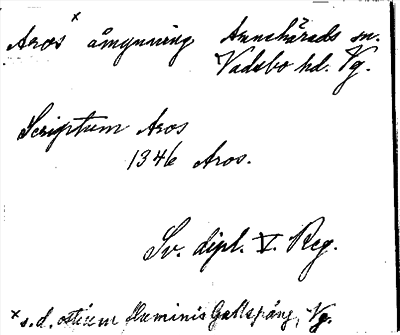 Aros x åmynning Amnehärads sn.
Vadsbo hd. Vg.
Scriptum Aros
1346 Aros.
Sv. dipl. V. Reg.
x s.d. ostium fluminis Gullspång, Vg.